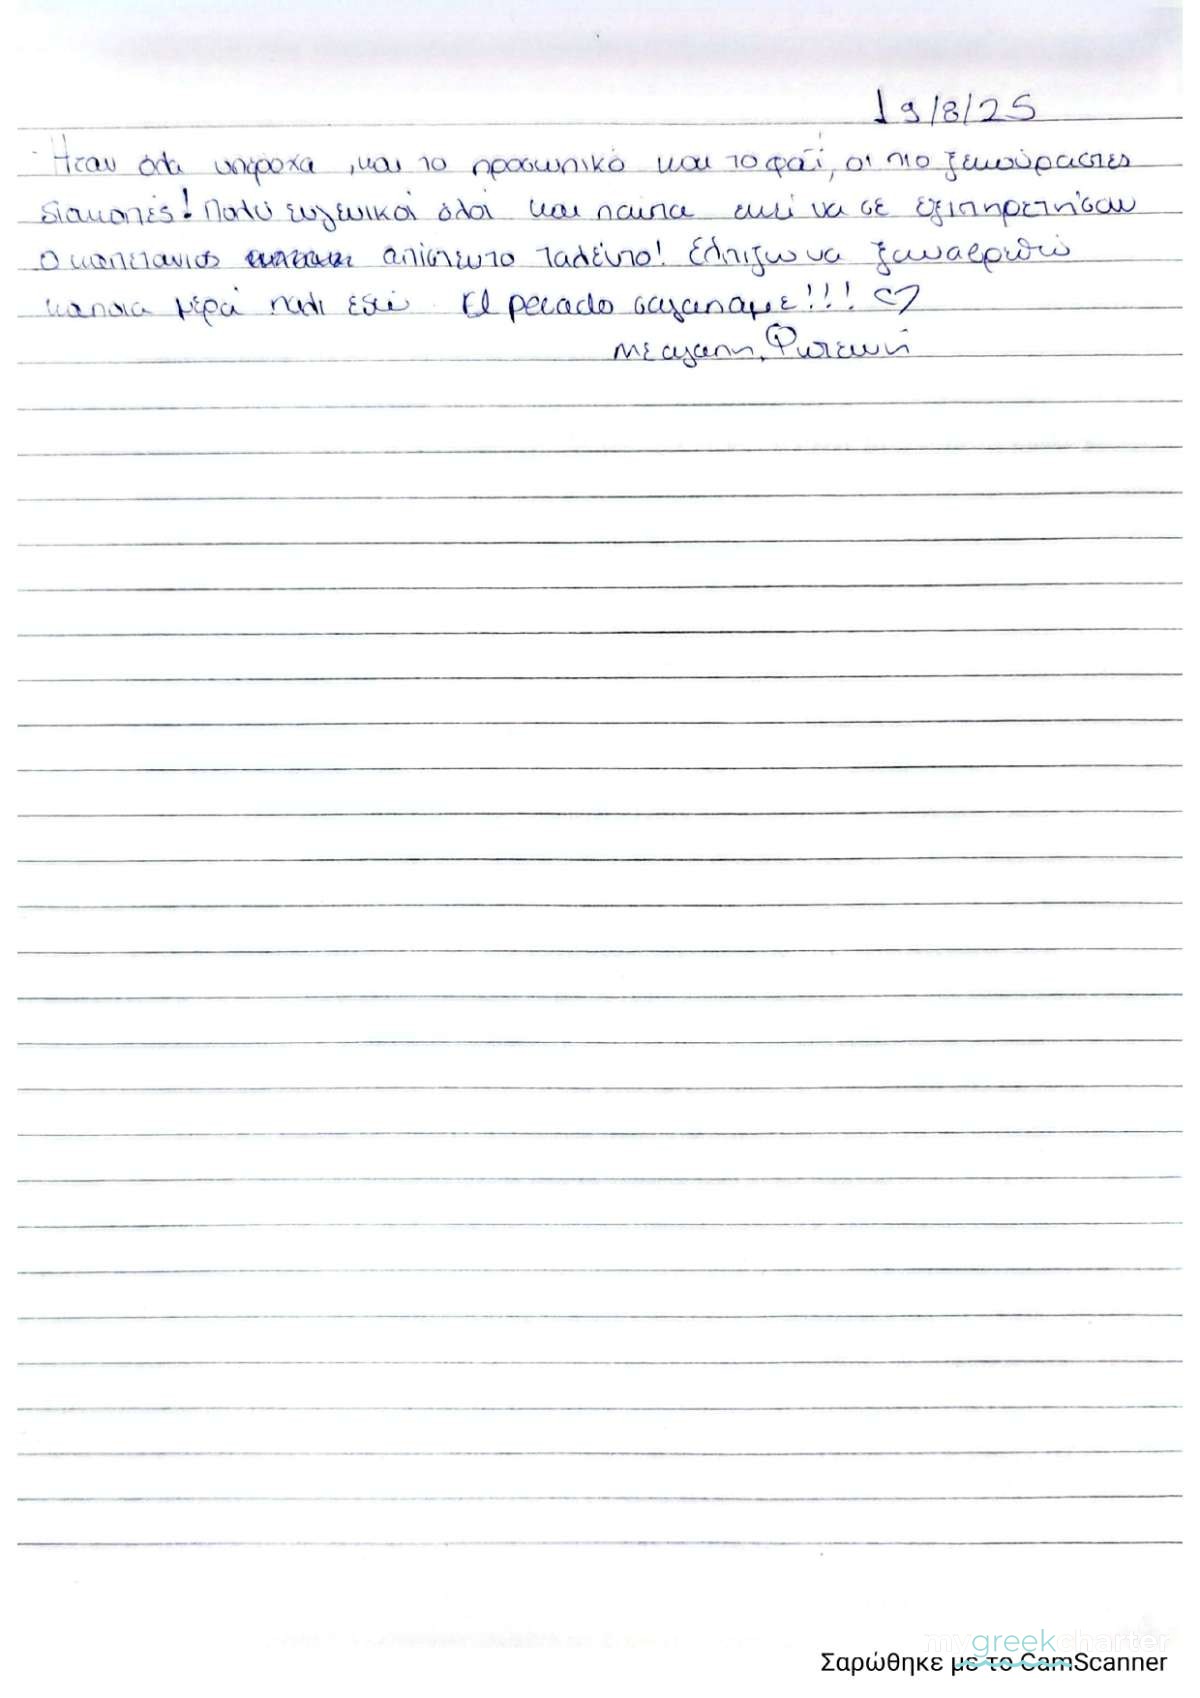 19/8/25
Ήταν όλα υπέροχα, και το προσωπικό και το φαΐ, οι πιο ξεκούραστες
διακοπές! Πολύ ευγενικοί όλοι και πάντα εκεί να σε εξυπηρετήσουν
Ο καπετάνιος απίστευτο ταλέντο! Ελπίζω να ξαναερθώ
κάποια μέρα πάλι εδώ. El pecado σαγαπαμε!!!
με αγάπη, Φωτεινή
mygreekcharter
Σαρώθηκε με το CamScanner